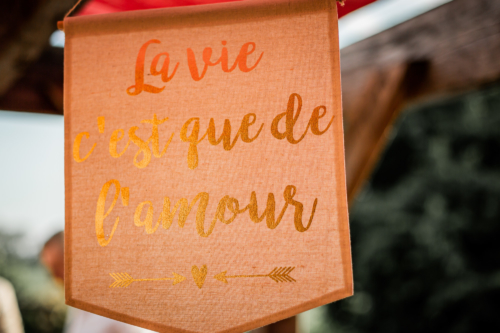 La vie
c'est que de
l'amour